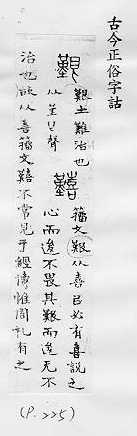 古今正俗字詁
艱
艱土難治也
从堇艮聲
囏
籀文艱从喜必有喜說之
心而後不畏其艱而後无不
治也故从喜籀文囏不常見于經傳惟周礼有之
(P.225)